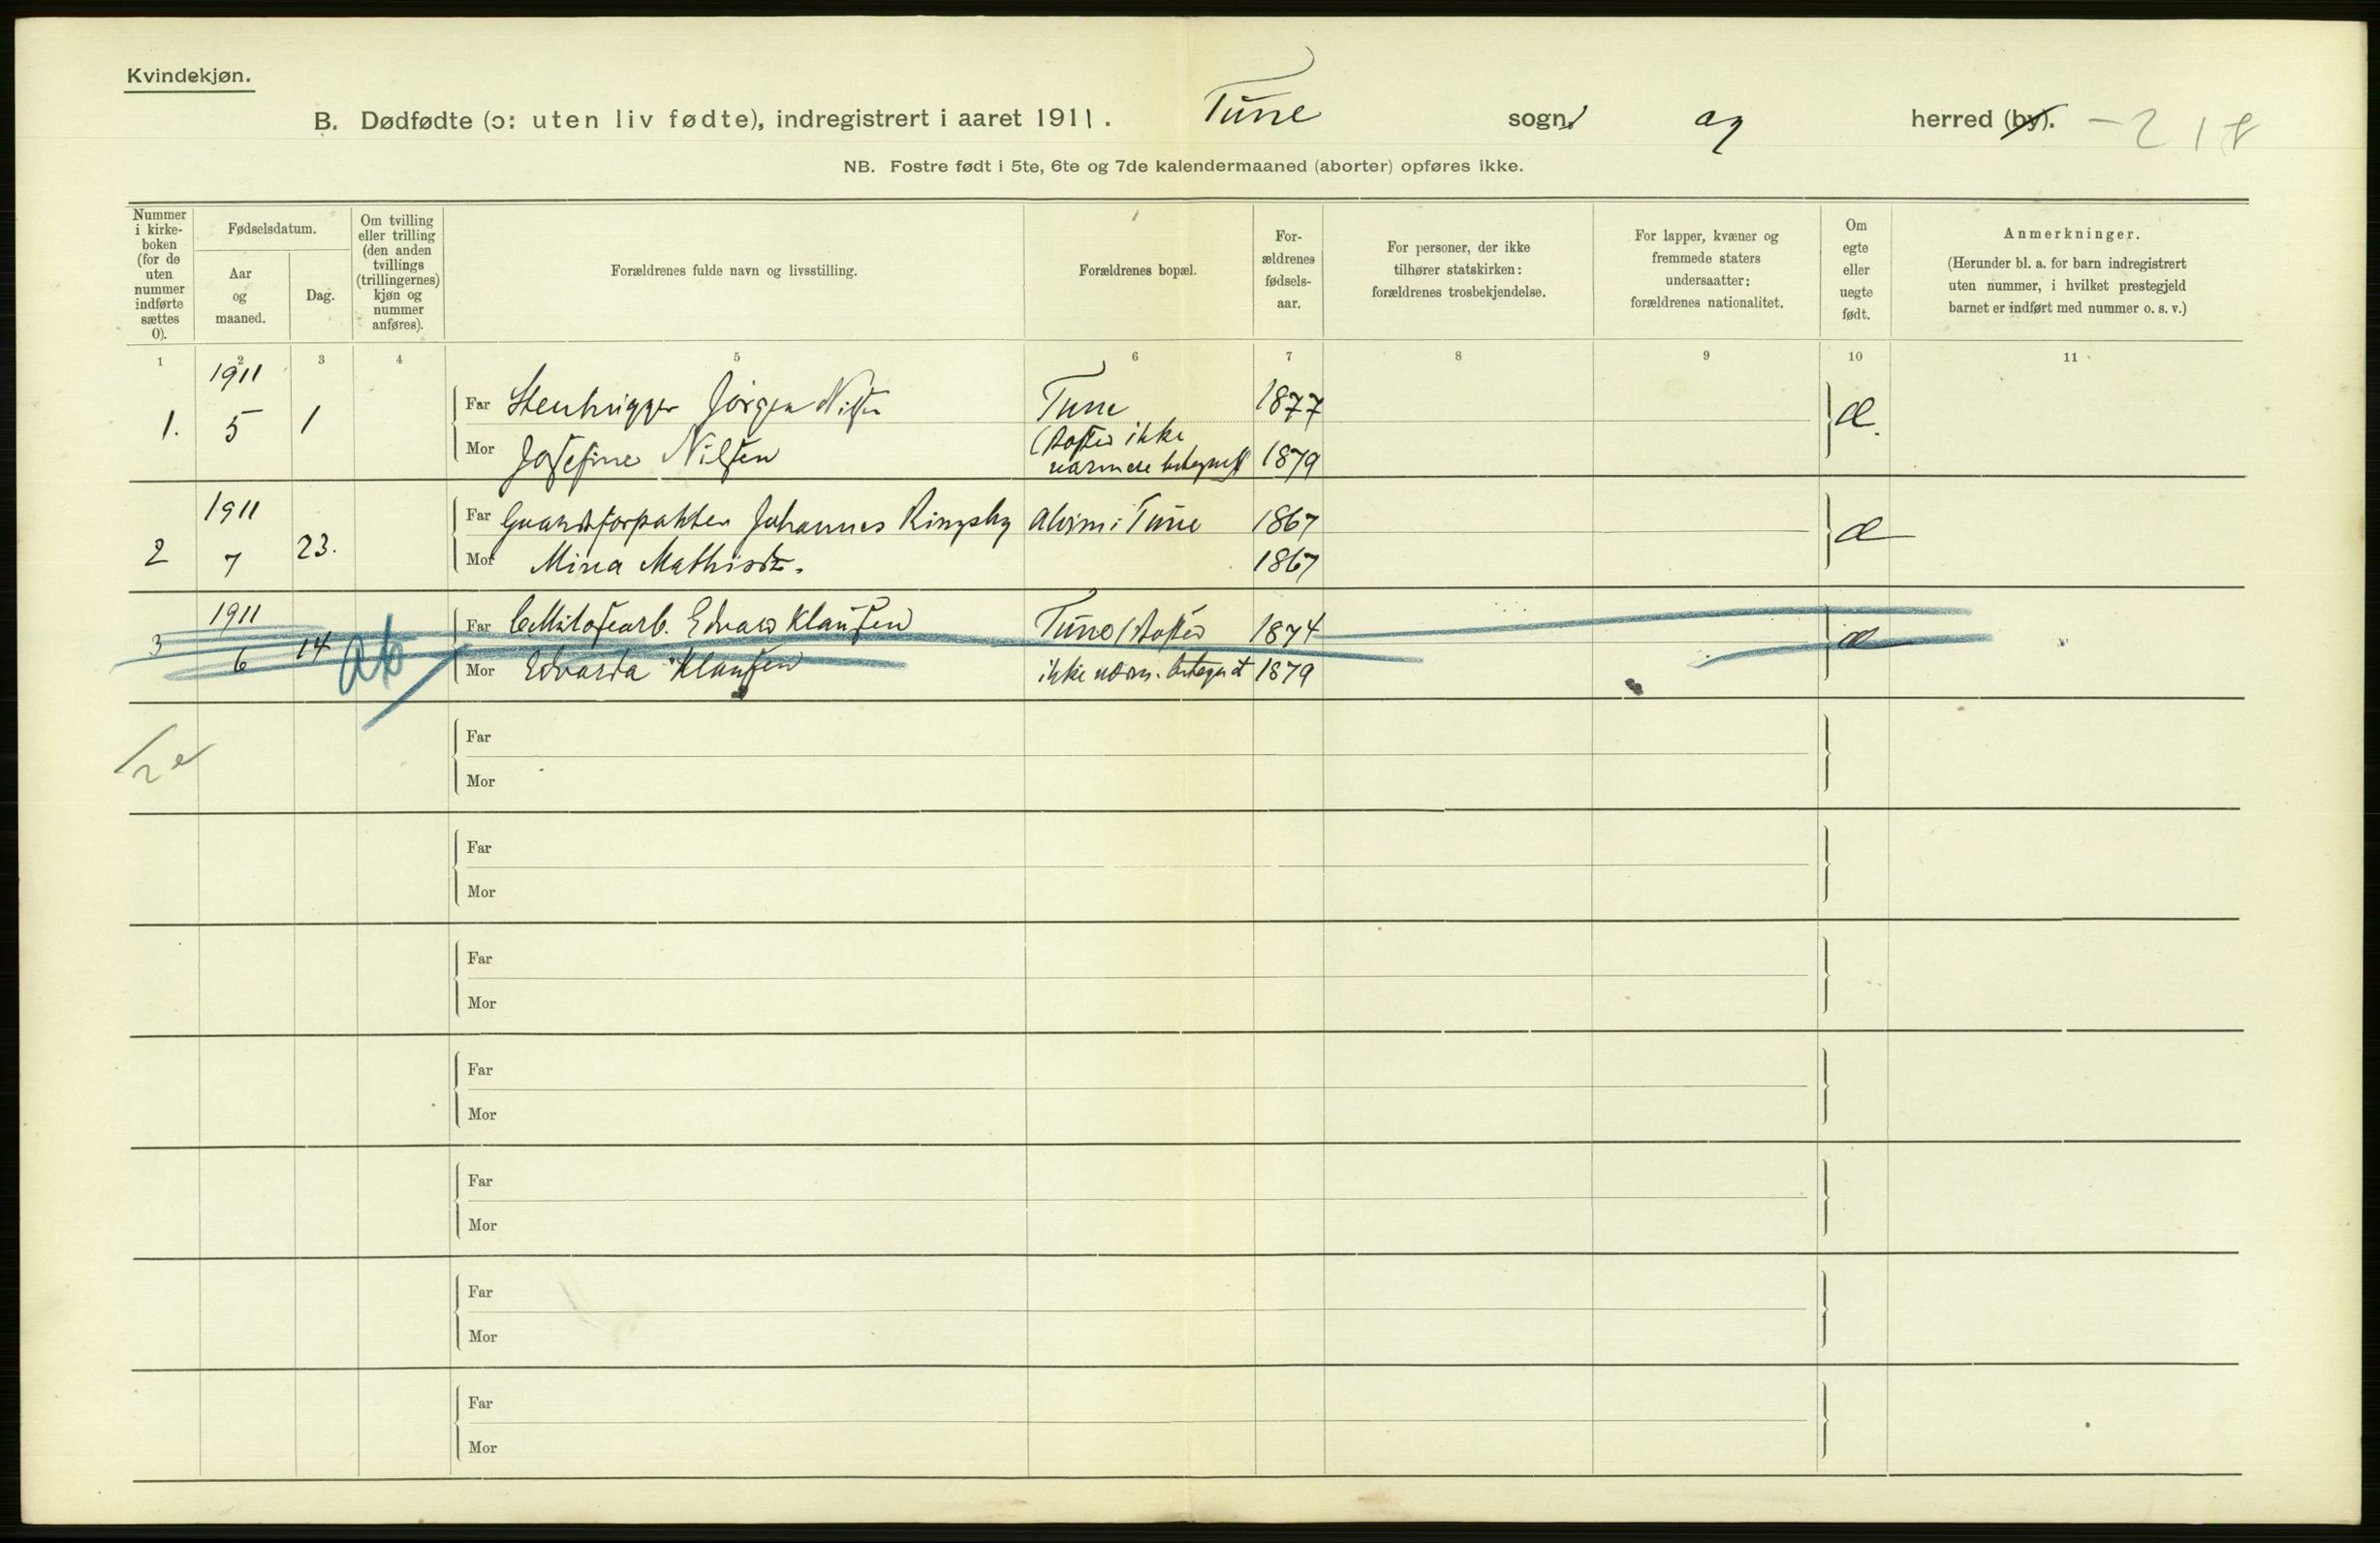 Kvindekjøn.
B. Dødfødte (ɔ: uten liv fødte), indregistrert i aaret 1911. Tune sogn og herred (by). - 218
NB. Fostre født i 5te, 6te og 7de kalendermaaned (aborter) opføres ikke.
Nummer i kirke- boken (for de uten nummer indførte sættes 0).
Fødselsdatum.
Aar og maaned.
Dag.
Om tvilling eller trilling (den anden tvillings (trillingernes) kjøn og nummer anføres).
Forældrenes fulde navn og livsstilling.
Forældrenes bopæl.
For- ældrenes fødsels- aar.
For personer, der ikke tilhører statskirken: forældrenes trosbekjendelse.
For lapper, kvæner og fremmede staters undersaatter: forældrenes nationalitet.
Om egte eller uegte født.
Anmerkninger.
(Herunder bl. a. for barn indregistrert uten nummer, i hvilket prestegjeld barnet er indført med nummer o. s. v.)
1 2 3 4 5 6 7 8 9 10 11
1911
1. 5 1
Far Stenhugger Jørgen Nilsen Tune 1877
Mor Josefine Nilsen (Stedet ikke nærmere betegnet) 1879
Æ.
1911
2 7 23.
Far Gaardforpakter Johannes Ringsby Alvim i Tune 1867
Mor Mina Mathisd. 1867
Æ
1911
3 6 14 ab
Far Cellulosearb. Edvard Klausen Tune (Stedet 1874
Mor Edvarda Klausen ikke nærm. betegnet 1879
Æ
Far
Mor
Far
Mor
Far
Mor
Far
Mor
Far
Mor
Far
Mor
Far
Mor